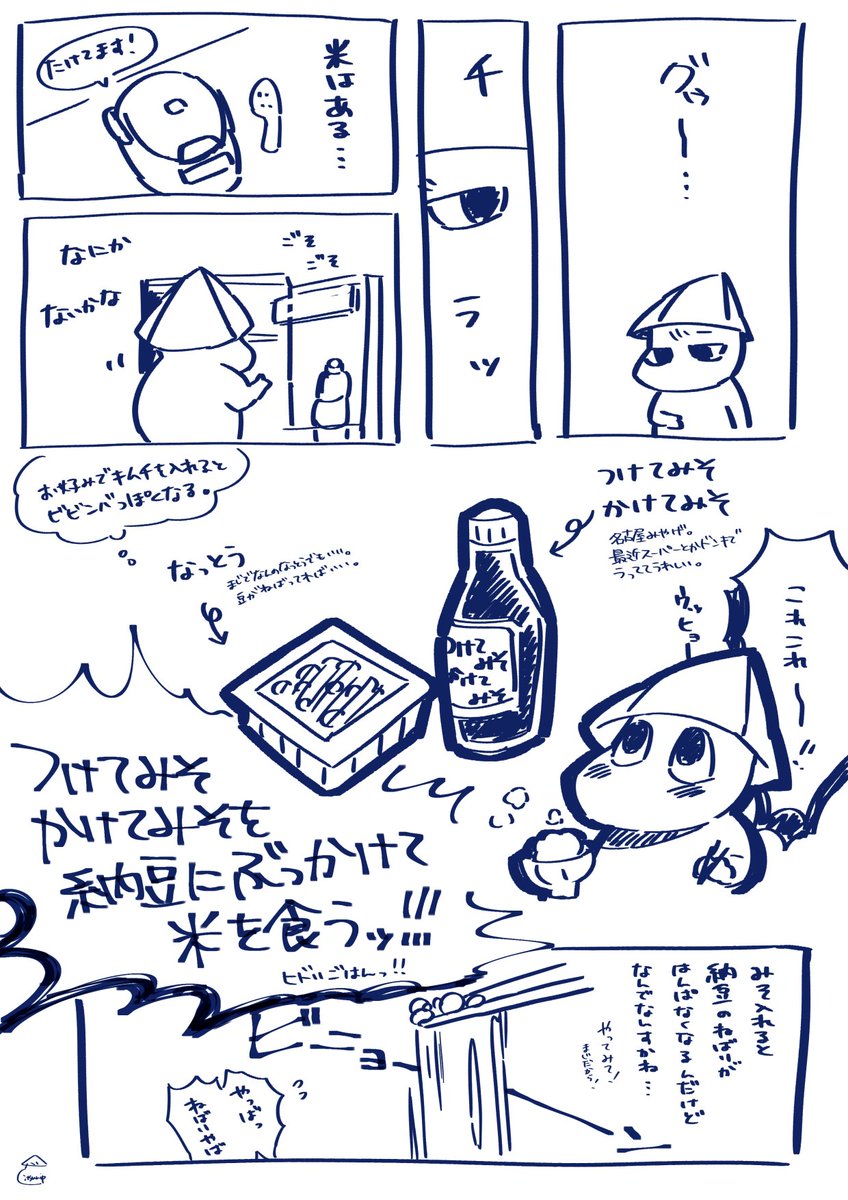 グゥ〜…
チラッ
米はある…
たけてます!
ごそ
ごそ
なにか
ないかな
つけてみそ
かけてみそ
名古屋みやげ。
最近スーパーとかドンキで
うっててうれしい。
これこれ〜!!
ウッヒョー
つけて
みそ
かけて
みそ
なっとう
まじでなんのなっとうでもいい…。
豆がねばってれば…。
お好みでキムチを入れると
ビビンバっぽくなる。
つけてみそ
かけてみそを
納豆にぶっかけて
米を食うッ!!!
ヒドいごはんっ!!
みそ入れると
納豆のねばりが
はんぱなくなるんだけど
なんでなんすかね…
やってみて!
まじだから!
ビニョーン
やっばっ
ねばいやば